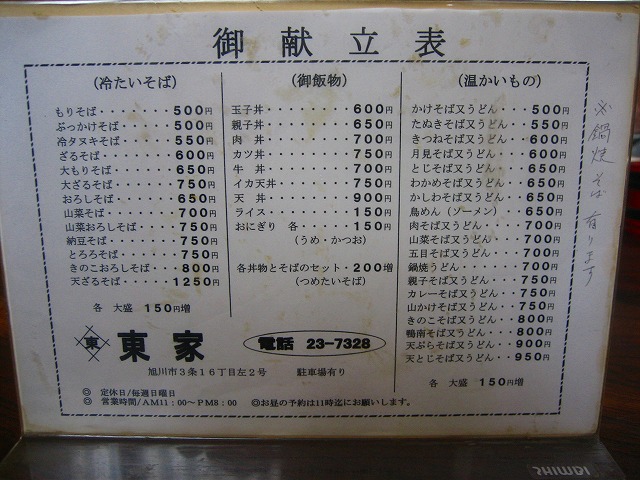 御献立表
(冷たいそば)
もりそば・・・・・・・・500円
ぶっかけそば・・・・・・500円
冷タヌキそば・・・・・・550円
ざるそば・・・・・・・・600円
大もりそば・・・・・・・650円
大ざるそば・・・・・・・750円
おろしそば・・・・・・・650円
山菜そば・・・・・・・・700円
山菜おろしそば・・・・・750円
納豆そば・・・・・・・・750円
とろろそば・・・・・・・750円
きのこおろしそば・・・・800円
天ざるそば・・・・・・1250円
各 大盛 150円増
(御飯物)
玉子丼・・・・・・・・600円
親子丼・・・・・・・・650円
肉 丼・・・・・・・・700円
カツ丼・・・・・・・・750円
牛 丼・・・・・・・・700円
イカ天丼・・・・・・・750円
天 丼・・・・・・・・900円
ライス・・・・・・・・150円
おにぎり 各・・・・・150円
(うめ・かつお)
各丼物とそばのセット・200増
(つめたいそば)
(温かいもの)
かけそば又うどん・・・500円
たぬきそば又うどん・・550円
きつねそば又うどん・・600円
月見そば又うどん・・・600円
とじそば又うどん・・・650円
わかめそば又うどん・・650円
かしわそば又うどん・・650円
鳥めん(ソーメン)・・650円
肉そば又うどん・・・・700円
山菜そば又うどん・・・700円
五目そば又うどん・・・700円
鍋焼うどん・・・・・・700円
親子そば又うどん・・・750円
カレーそば又うどん・・750円
山かけそば又うどん・・750円
きのこそば又うどん・・800円
鴨南そば又うどん・・・800円
天ぷらそば又うどん・・900円
天とじそば又うどん・・950円
各 大盛 150円増
※鍋焼そば有ります
東 東家
電話 23-7328
旭川市3条16丁目左2号 駐車場有り
◎ 定休日/毎週日曜日
◎ 営業時間/AM11:00~PM8:00 ◎お昼の予約は11時迄にお願いします。
SHIMBI